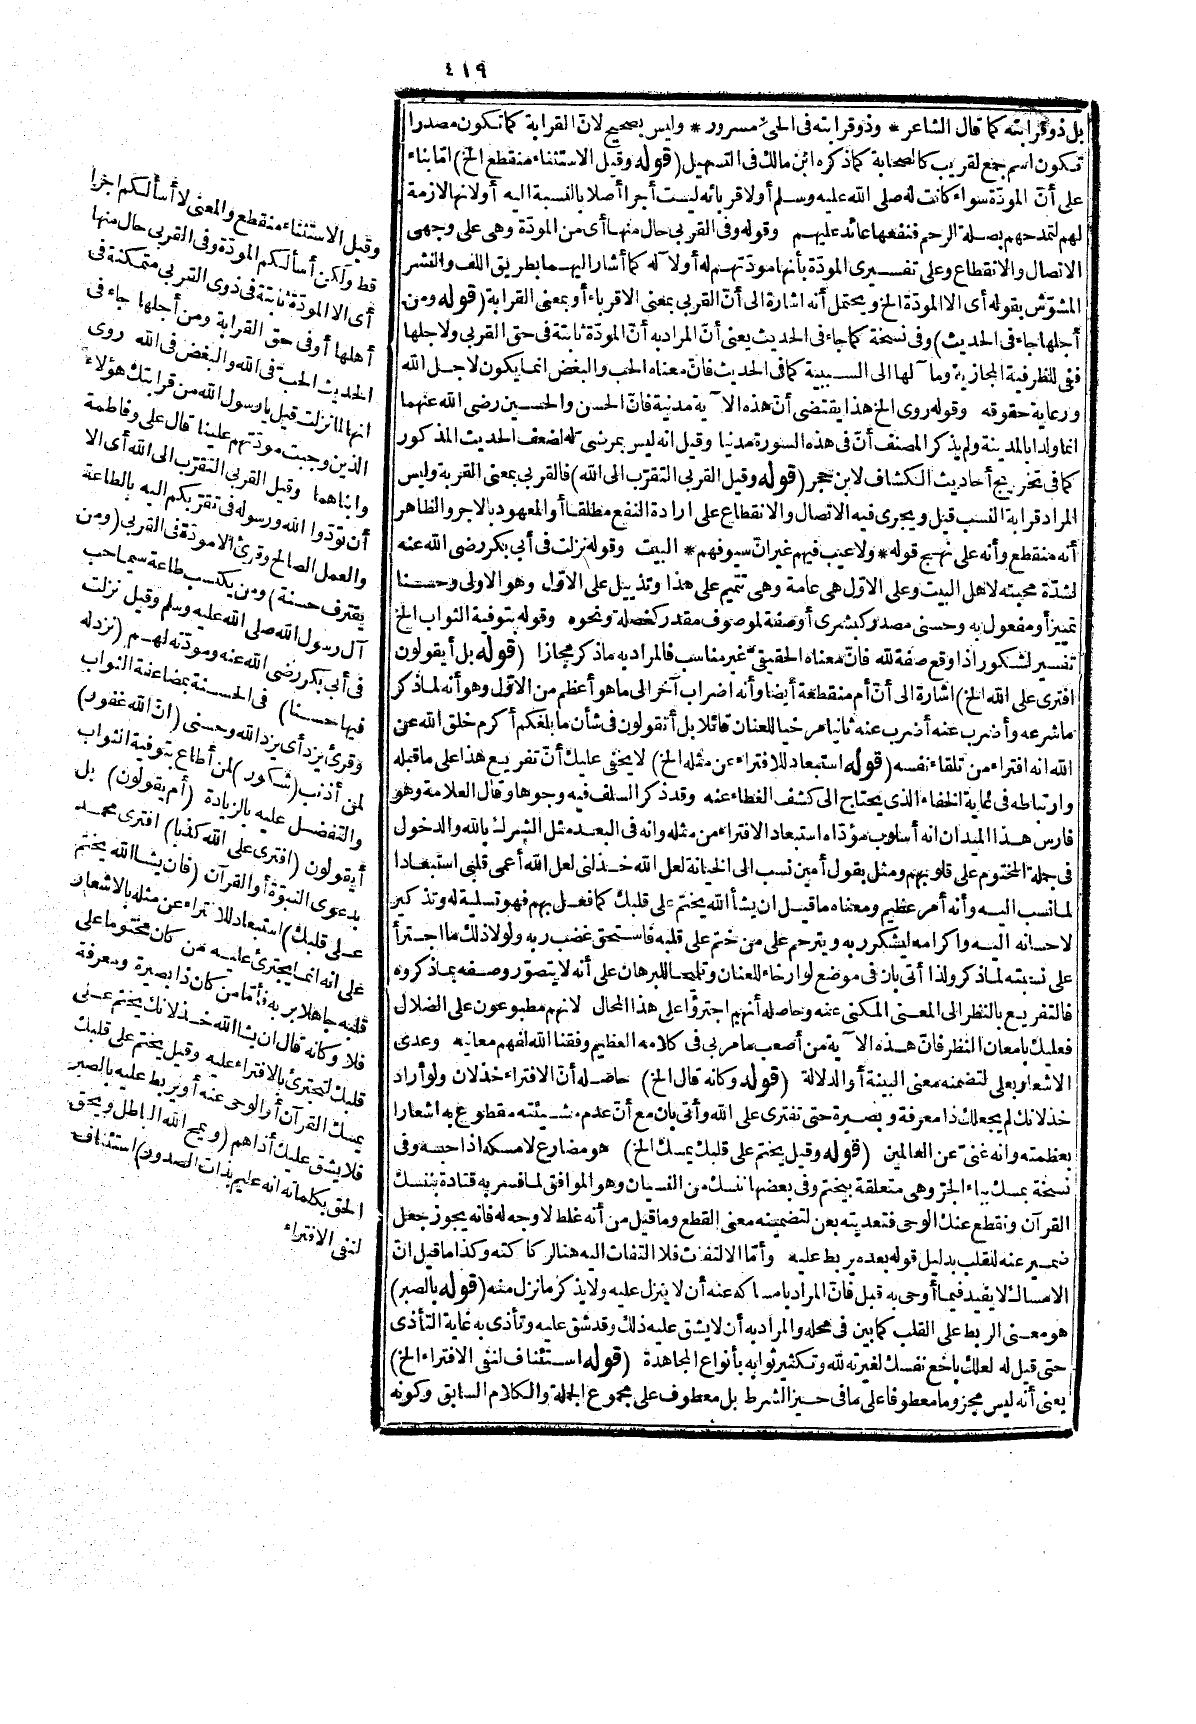 ٤١٩
بل ذو قرابته كما قال الشاعر * وذو قرابته فى الحىّ مسرور * وليس بصحيح لانّ القرابة كما تكون مصدرا
تكون اسم جمع لقريب كالصحابة كما ذكره ابن مالك فى التسهيل (قوله وقيل الاستثناء منقطع الخ) امّا بناء
على أنّ المودّة سواء كانت له صلى الله عليه وسلم أولاقربائه ليست أجرا أصلا بالنسبة اليه أولانها لازمة
لهم لتمدحهم بصلة الرحم فنفعها عائد عليهم وقوله وفى القربى حال منها أى من المودّة وهى على وجهى
الاتصال والانقطاع وعلى تفسيرى المودّة بأنها مودّتهم له أولا له كما أشار اليهما بطريق اللف والنشر
المشوّش بقوله أى الا المودّة الخ ويحتمل أنه اشارة الى أنّ القربى بمعنى الاقرباء أو بمعنى القرابة (قوله ومن
أجلها جاء فى الحديث) وفى نسخة كما جاء فى الحديث يعنى أنّ المراد به أنّ المودّة ثابتة فى حق القربى ولاجلها
ففى للظرفية المجازية وما آلها الى السببية كما فى الحديث فانّ معناه الحب والبغض انما يكون لاجل الله
ورعاية حقوقه وقوله روى الخ هذا يقتضى أنّ هذه الآية مدنية فانّ الحسن والحسين رضى الله عنهما
انما ولدا بالمدينة ولم يذكر المصنف أنّ فى هذه السورة مدنيا وقيل انه ليس بمرضىّ له لضعف الحديث المذكور
كما فى تخريج أحاديث الكشاف لابن حجر (قوله وقيل القربى التقرّب الى الله) فالقربى بمعنى القربة وليس
المراد قرابة النسب قيل ويجرى فيه الاتصال والانقطاع على ارادة النفع مطلقا أو المعهود بالاجر والظاهر
أنه منقطع وأنه على نهج قوله * ولا عيب فيهم غير انّ سيوفهم * البيت وقوله نزلت فى أبى بكر رضى الله عنه
لشدّة محبته لاهل البيت وعلى الاوّل هى عامة وهى تتميم على هذا وتذييل على الاوّل وهو الاولى وحسنا
تمييز أو مفعول به وحسنى مصدر كبشرى أو صفة لموصوف مقدر كخصلة ونحوه وقوله بتوفية الثواب الخ
تفسير لشكور اذا وقع صفة لله فانّ معناه الحقيقىّ غير مناسب فالمراد به ما ذكر مجازا (قوله بل أيقولون
افترى على الله الخ) اشارة الى أنّ أم منقطعة أيضا وأنه اضراب آخر الى ما هو أعظم من الاوّل وهو أنه لما ذكر
ما شرعه وأضرب عنه أضرب عنه ثانيا مرخيا للعنان قائلا بل أتقولون فى شأن ما بلغكم أكرم خلق الله عن
الله انه افتراء من تلقاء نفسه (قوله استبعاد للافتراء عن مثله الخ) لا يخفى عليك أنّ تفريع هذا على ما قبله
وارتباطه فى غاية الخفاء الذى يحتاج الى كشف الغطاء عنه وقد ذكر السلف فيه وجوها وقال العلامة وهو
فارس هذا الميدان انه أسلوب مؤدّاه استبعاد الافتراء من مثله وانه فى البعد مثل الشرك بالله والدخول
فى جملة المختوم على قلوبهم ومثل بقول أمين نسب الى الخيانة لعل الله خذلنى لعل الله أعمى قلبى استبعادا
لما نسب اليه وأنه أمر عظيم ومعناه ما قيل ان يشأ الله يختم على قلبك كما فعل بهم فهو تسلية له وتذكير
لاحسانه اليه واكرامه ليشكر ربه ويترحم على من ختم على قلبه فاستحق غضب ربه ولولا ذلك ما اجترأ
على نسبته لما ذكر ولذا أتى بان فى موضع لو ارخاء للعنان وتلميحا للبرهان على أنه لا يتصوّر وصفه بما ذكروه
فالتفريع بالنظر الى المعنى المكنى عنه وحاصله أنهم اجترؤا على هذا المحال لانهم مطبوعون على الضلال
فعليك بامعان النظر فانّ هذه الآية من أصعب ما مر بى فى كلامه العظيم وفقنا الله لفهم معانيه وعدى
الاشعار بعلى لتضمنه معنى البينة أو الدلالة (قوله وكانه قال الخ) حاصله أنّ الافتراء خذلان ولو أراد
خذلانك لم يجعلك ذا معرفة وبصيرة حتى تفترى على الله وأتى بان مع أنّ عدم مشيئته مقطوع به اشعارا
بعظمته وانه غنىّ عن العالمين (قوله وقيل يختم على قلبك يمسك الخ) هو مضارع لامسكه اذا حبسه وفى
نسخة بمسك بباء الجرّ وهى متعلقة بيختم وفى بعضها ننسك من النسيان وهو الموافق لما فسر به قتادة بننسك
القرآن ونقطع عنك الوحى فتعديته بعن لتضمينه معنى القطع وما قيل من أنه غلط لا وجه له فانه يجوز جعل
ضمير عنه للقلب بدليل قوله بعده يربط عليه وأمّا الالتفات فلا التفات اليه هنا لركاكته وكذا ما قيل انّ
الامساك لا يفيد فيما أوحى به قبل فانّ المراد بامساكه عنه أن لا ينزل عليه ولا يذكر ما نزل منه (قوله بالصبر)
هو معنى الربط على القلب كما بين فى محله والمراد به أن لا يشق عليه ذلك وقد شق عليه وتأذى به غاية التأذى
حتى قيل له لعلك باخع نفسك لغيرته لله وتكثير ثوابه بأنواع المجاهدة (قوله استئناف لنفى الافتراء الخ)
يعنى أنه ليس مجزوما معطوفا على ما فى حيز الشرط بل معطوف على مجموع الجملة والكلام السابق وكونه
وقيل الاستثناء منقطع والمعنى لا أسألكم اجرا
قط ولكن أسألكم المودّة وفى القربى حال منها
أى الا المودّة ثابتة فى ذوى القربى متمكنة فى
أهلها أو فى حق القرابة ومن أجلها جاء فى
الحديث الحب فى الله والبغض فى الله روى
انها لما نزلت قيل يا رسول الله من قرابتك هؤلاء
الذين وجبت مودّتهم علينا قال على وفاطمة
وابناهما وقيل القربى التقرّب الى الله أى الا
أن تودّوا الله ورسوله فى تقرّبكم اليه بالطاعة
والعمل الصالح وقرئ الا مودّة فى القربى (ومن
يقترف حسنة) ومن يكتسب طاعة سيما حب
آل رسول الله صلى الله عليه وسلم وقيل نزلت
فى أبى بكر رضى الله عنه ومودّته لهم (نزد له
فيها حسنا) فى الحسنة بمضاعفة الثواب
وقرئ يزد أى يزد الله وحسنى (انّ الله غفور)
لمن أذنب (شكور) لمن أطاع بتوفية الثواب
والتفضل عليه بالزيادة (أم يقولون) بل
أيقولون (افترى على الله كذبا) افترى محمد
بدعوى النبوّة أو القرآن (فان يشا الله يختم
على قلبك) استبعاد للافتراء عن مثله بالاشعار
على انه انما يجترئ عليه من كان مختوما على
قلبه جاهلا بربه فأمّا من كان ذا بصيرة ومعرفة
فلا وكانه قال ان يشا الله خذلانك يختم على
قلبك لتجترئ بالافتراء عليه وقيل يختم على قلبك
يمسك القرآن أو الوحى عنه أو يربط عليه بالصبر
فلا يشق عليك أذاهم (ويمح الله الباطل ويحق
الحق بكلماته انه عليم بذات الصدور) استئناف
لنفى الافتراء